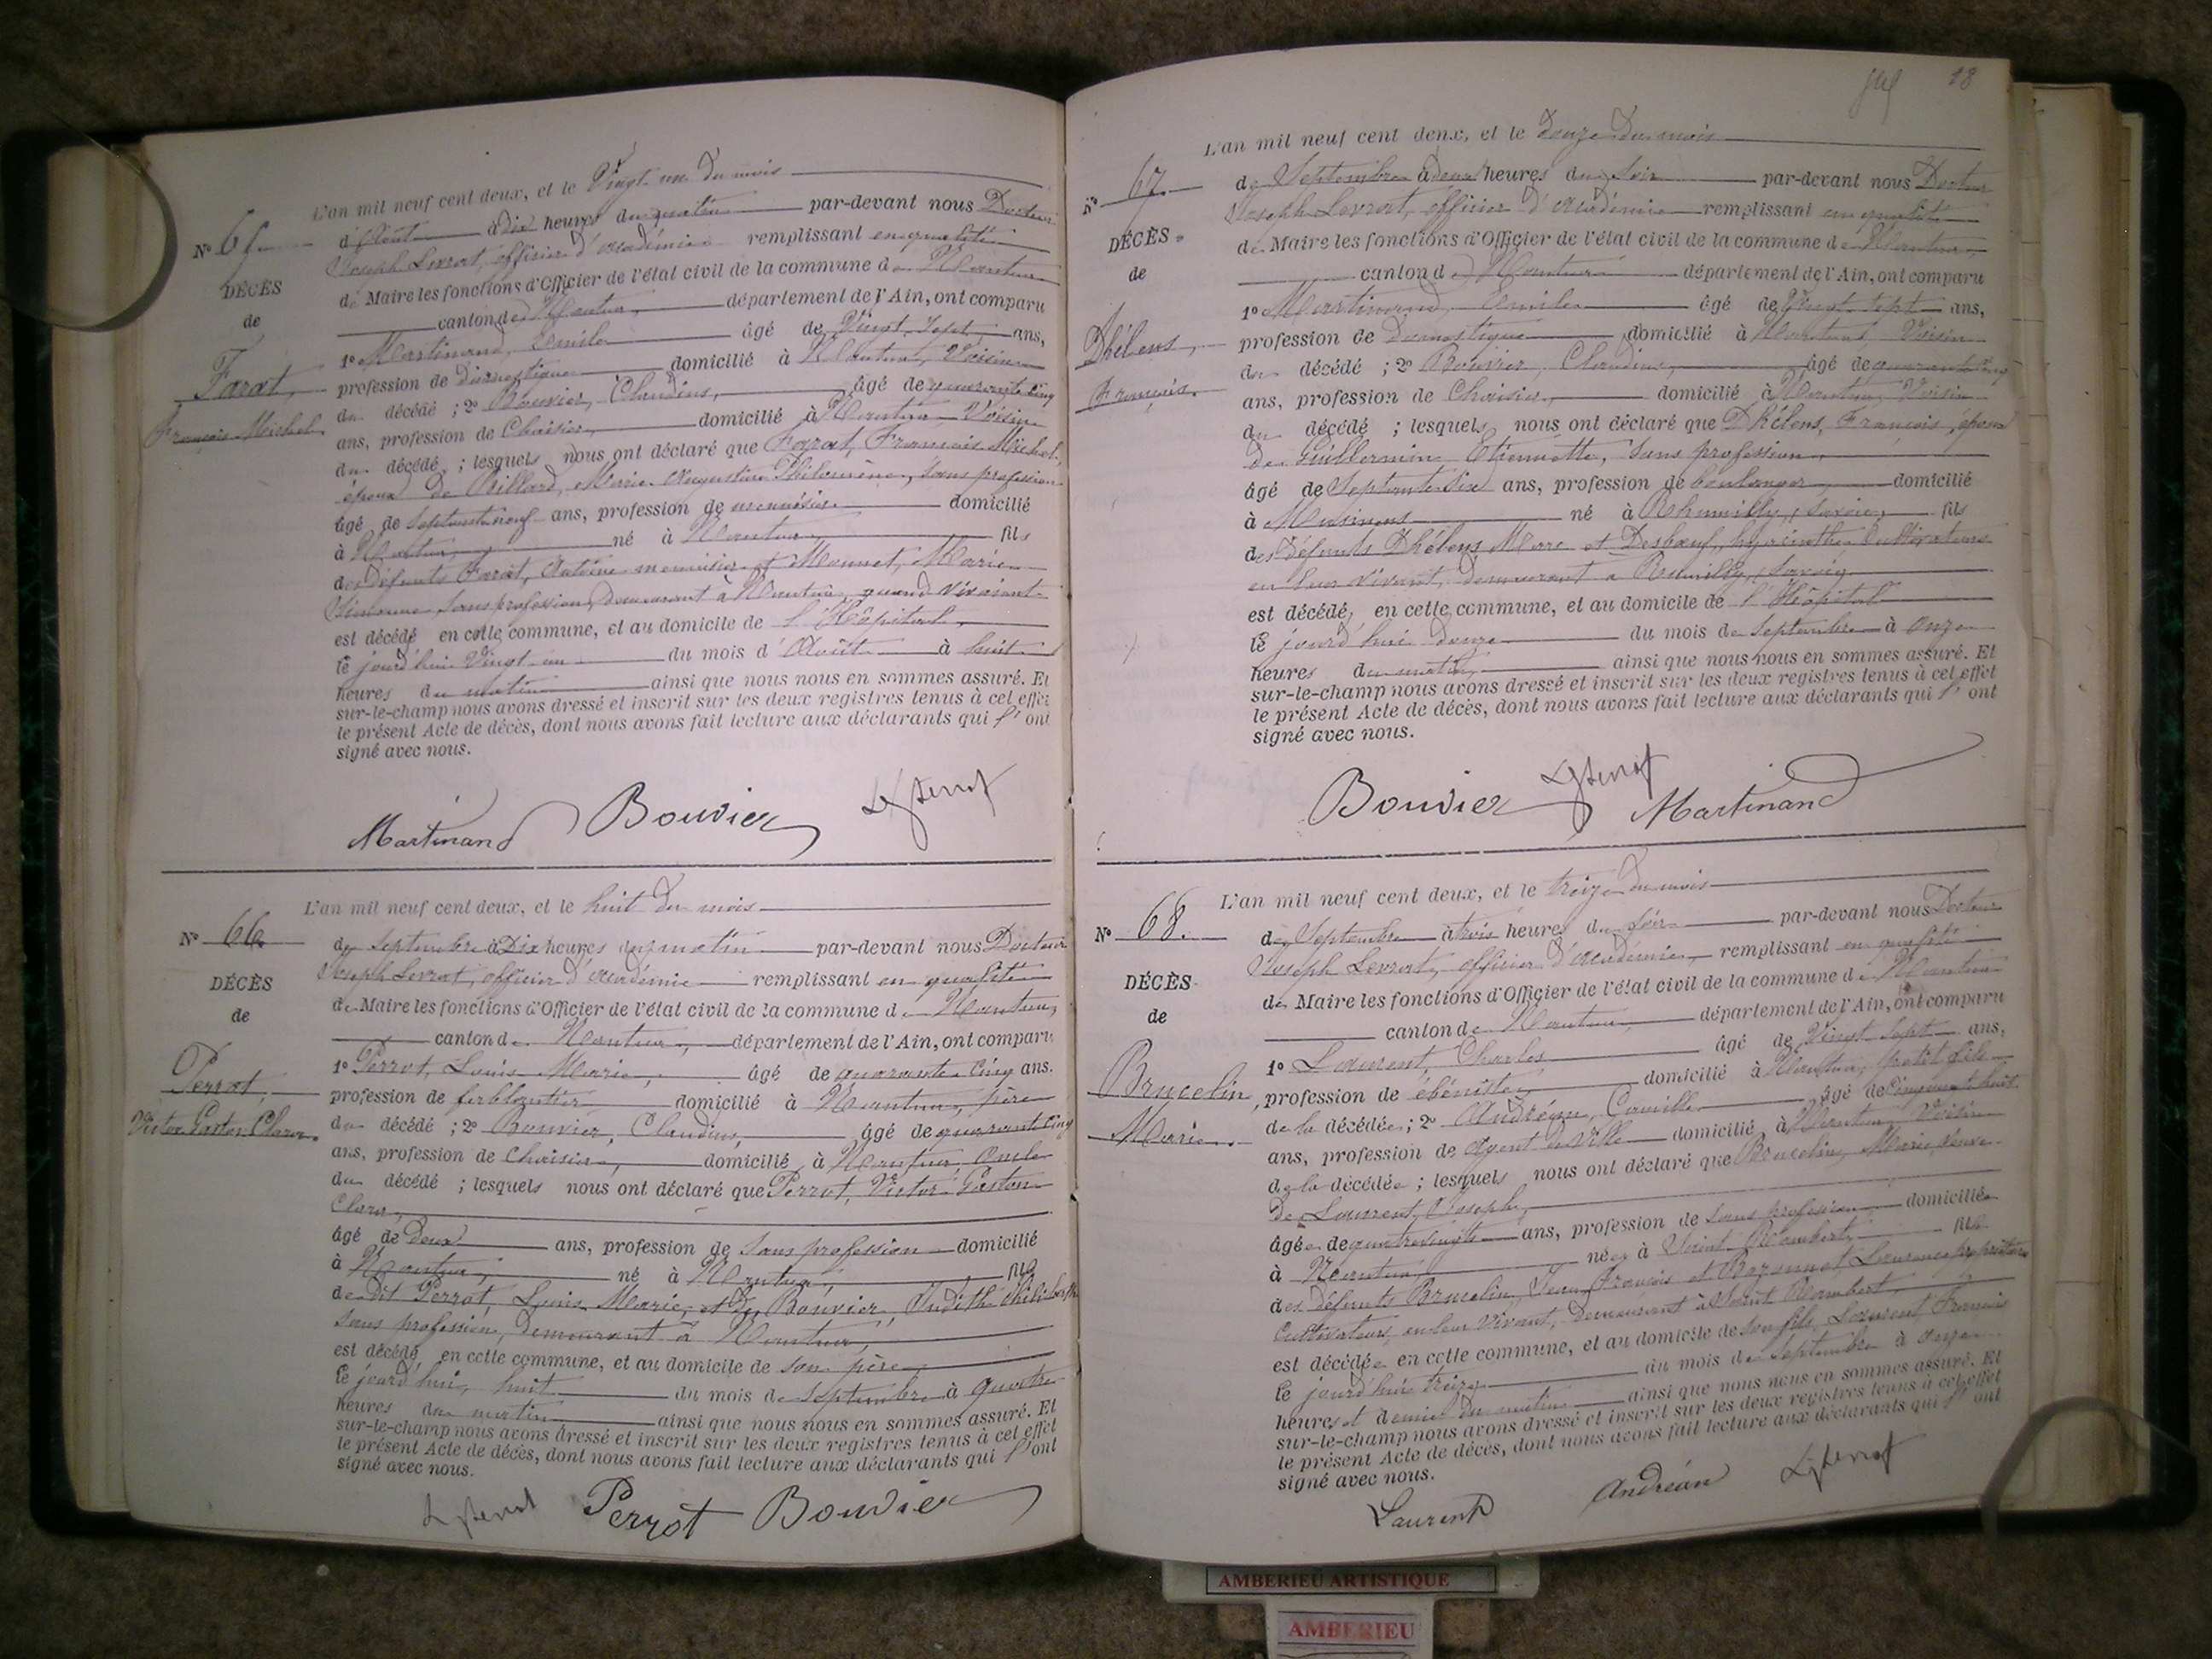 L'an mil neuf cent deux, et le Vingt un du mois
N° 65
d'Août à dix heures du matin par-devant nous Docteur
Joseph Levrat, officier d'Académie remplissant en qualité
DÉCÈS
de Maire les fonctions d'Officier de l'état civil de la commune de Nantua
de
canton de Nantua, département de l'Ain, ont comparu
1° Martinand, Emile âgé de Vingt Sept ans,
Farat,
profession de Domestique domicilié à Nantua, Voisin
François Michel
du décédé ; 2° Bouvier, Claudius, âgé de quarante cinq
ans, profession de Chaisier, domicilié à Nantua Voisin
du décédé ; lesquels nous ont déclaré que Farat, François Michel,
époux de Billard, Marie Augustine Philomène, sans profession
âgé de septante neuf ans, profession de menuisier domicilié
à Nantua, né à Nantua, fils
des défunts Farat, Antoine menuisier et Monnet, Marie
sans profession, demeurant à Nantua, quand vivaient
est décédé en cette commune, et au domicile de l'Hôpital,
le jourd'hui Vingt un du mois d'Août à huit
heures du matin ainsi que nous nous en sommes assuré. Et
sur-le-champ nous avons dressé et inscrit sur les deux registres tenus à cet effet
le présent Acte de décès, dont nous avons fait lecture aux déclarants qui l'ont
signé avec nous.
Martinand Bouvier
L'an mil neuf cent deux, et le huit du mois
N° 66
de Septembre à Dix heures du matin par-devant nous Docteur
Joseph Levrat, officier d'Académie remplissant en qualité
DÉCÈS
de Maire les fonctions d'Officier de l'état civil de la commune de Nantua,
de
canton de Nantua, département de l'Ain, ont comparu
1° Perrot, Louis Marie, âgé de quarante cinq ans.
Perrot,
profession de ferblantier domicilié à Nantua, père
Victor Gaston Clara.
du décédé ; 2° Bouvier, Claudius, âgé de quarante cinq
ans, profession de Chaisier, domicilié à Nantua, Oncle
du décédé ; lesquels nous ont déclaré que Perrot, Victor Gaston
Clara,
âgé de Deux ans, profession de sans profession domicilié
à Nantua, né à Nantua, fils
de dit Perrot, Louis Marie, et de Bouvier, Judith Philiberthe
sans profession, demeurant à Nantua,
est décédé en cette commune, et au domicile de son père,
le jourd'hui, huit du mois de septembre à quatre
heures du matin ainsi que nous nous en sommes assuré. Et
sur-le-champ nous avons dressé et inscrit sur les deux registres tenus à cet effet
le présent Acte de décès, dont nous avons fait lecture aux déclarants qui l'ont
signé avec nous.
Perrot Bouvier
18
L'an mil neuf cent deux, et le douze du mois
N° 67
de Septembre à deux heures du Soir par-devant nous Docteur
Joseph Levrat, officier d'Académie remplissant en qualité
DÉCÈS
de Maire les fonctions d'Officier de l'état civil de la commune de Nantua,
de
canton de Nantua département de l'Ain, ont comparu
1° Martinand, Emile âgé de Vingt sept ans,
Dhélens,
profession de Domestique domicilié à Nantua, Voisin
François.
du décédé ; 2° Bouvier, Claudius, âgé de quarante cinq
ans, profession de Chaisier, domicilié à Nantua, Voisin
du décédé ; lesquels nous ont déclaré que Dhélens, François, époux
de Guillermin Etiennette, sans profession,
âgé de Septante Six ans, profession de boulanger, domicilié
à Musinens né à Rhumilly, Savoie, fils
des défunts Dhélens Marc et Desbœuf, hyacinthe Cultivateurs
en leur vivant, demeurant à Rumilly, Savoie
est décédé, en cette commune, et au domicile de l'Hôpital
le jourd'hui douze du mois de septembre à onze
heures du matin, ainsi que nous nous en sommes assuré. Et
sur-le-champ nous avons dressé et inscrit sur les deux registres tenus à cet effet
le présent Acte de décès, dont nous avons fait lecture aux déclarants qui l'ont
signé avec nous.
Bouvier Martinand
L'an mil neuf cent deux, et le treize du mois
N° 68.
de Septembre à trois heures du soir par-devant nous Docteur
Joseph Levrat, officier d'Académie, remplissant en qualité
DÉCÈS
de Maire les fonctions d'Officier de l'état civil de la commune de Nantua
de
canton de Nantua département de l'Ain, ont comparu
1° Laurent, Charles âgé de Vingt Sept ans,
Brucelin,
profession de ébéniste, domicilié à Nantua, petit fils
Marie.
de la décédée ; 2° Andréan, Camille âgé de Cinquant huit
ans, profession de Agent de Ville domicilié à Nantua, Voisin
de la décédée ; lesquels nous ont déclaré que Brucelin, Marie, Veuve
de Laurent, Joseph,
âgée de quatre vingts ans, profession de sans profession domiciliée
à Nantua, née à Saint Rambert, fille
des défunts Brucelin, Jean François et Laurence propriétaires
Cultivateurs, en leur vivant, demeurant à Saint Rambert,
est décédée en cette commune, et au domicile de son fils, Laurent François
le jourd'hui treize du mois de septembre à onze
heures et demie du matin ainsi que nous nous en sommes assuré. Et
sur-le-champ nous avons dressé et inscrit sur les deux registres tenus à cet effet
le présent Acte de décès, dont nous avons fait lecture aux déclarants qui l'ont
signé avec nous.
Laurent Andréan
AMBERIEU ARTISTIQUE
AMBERIEU